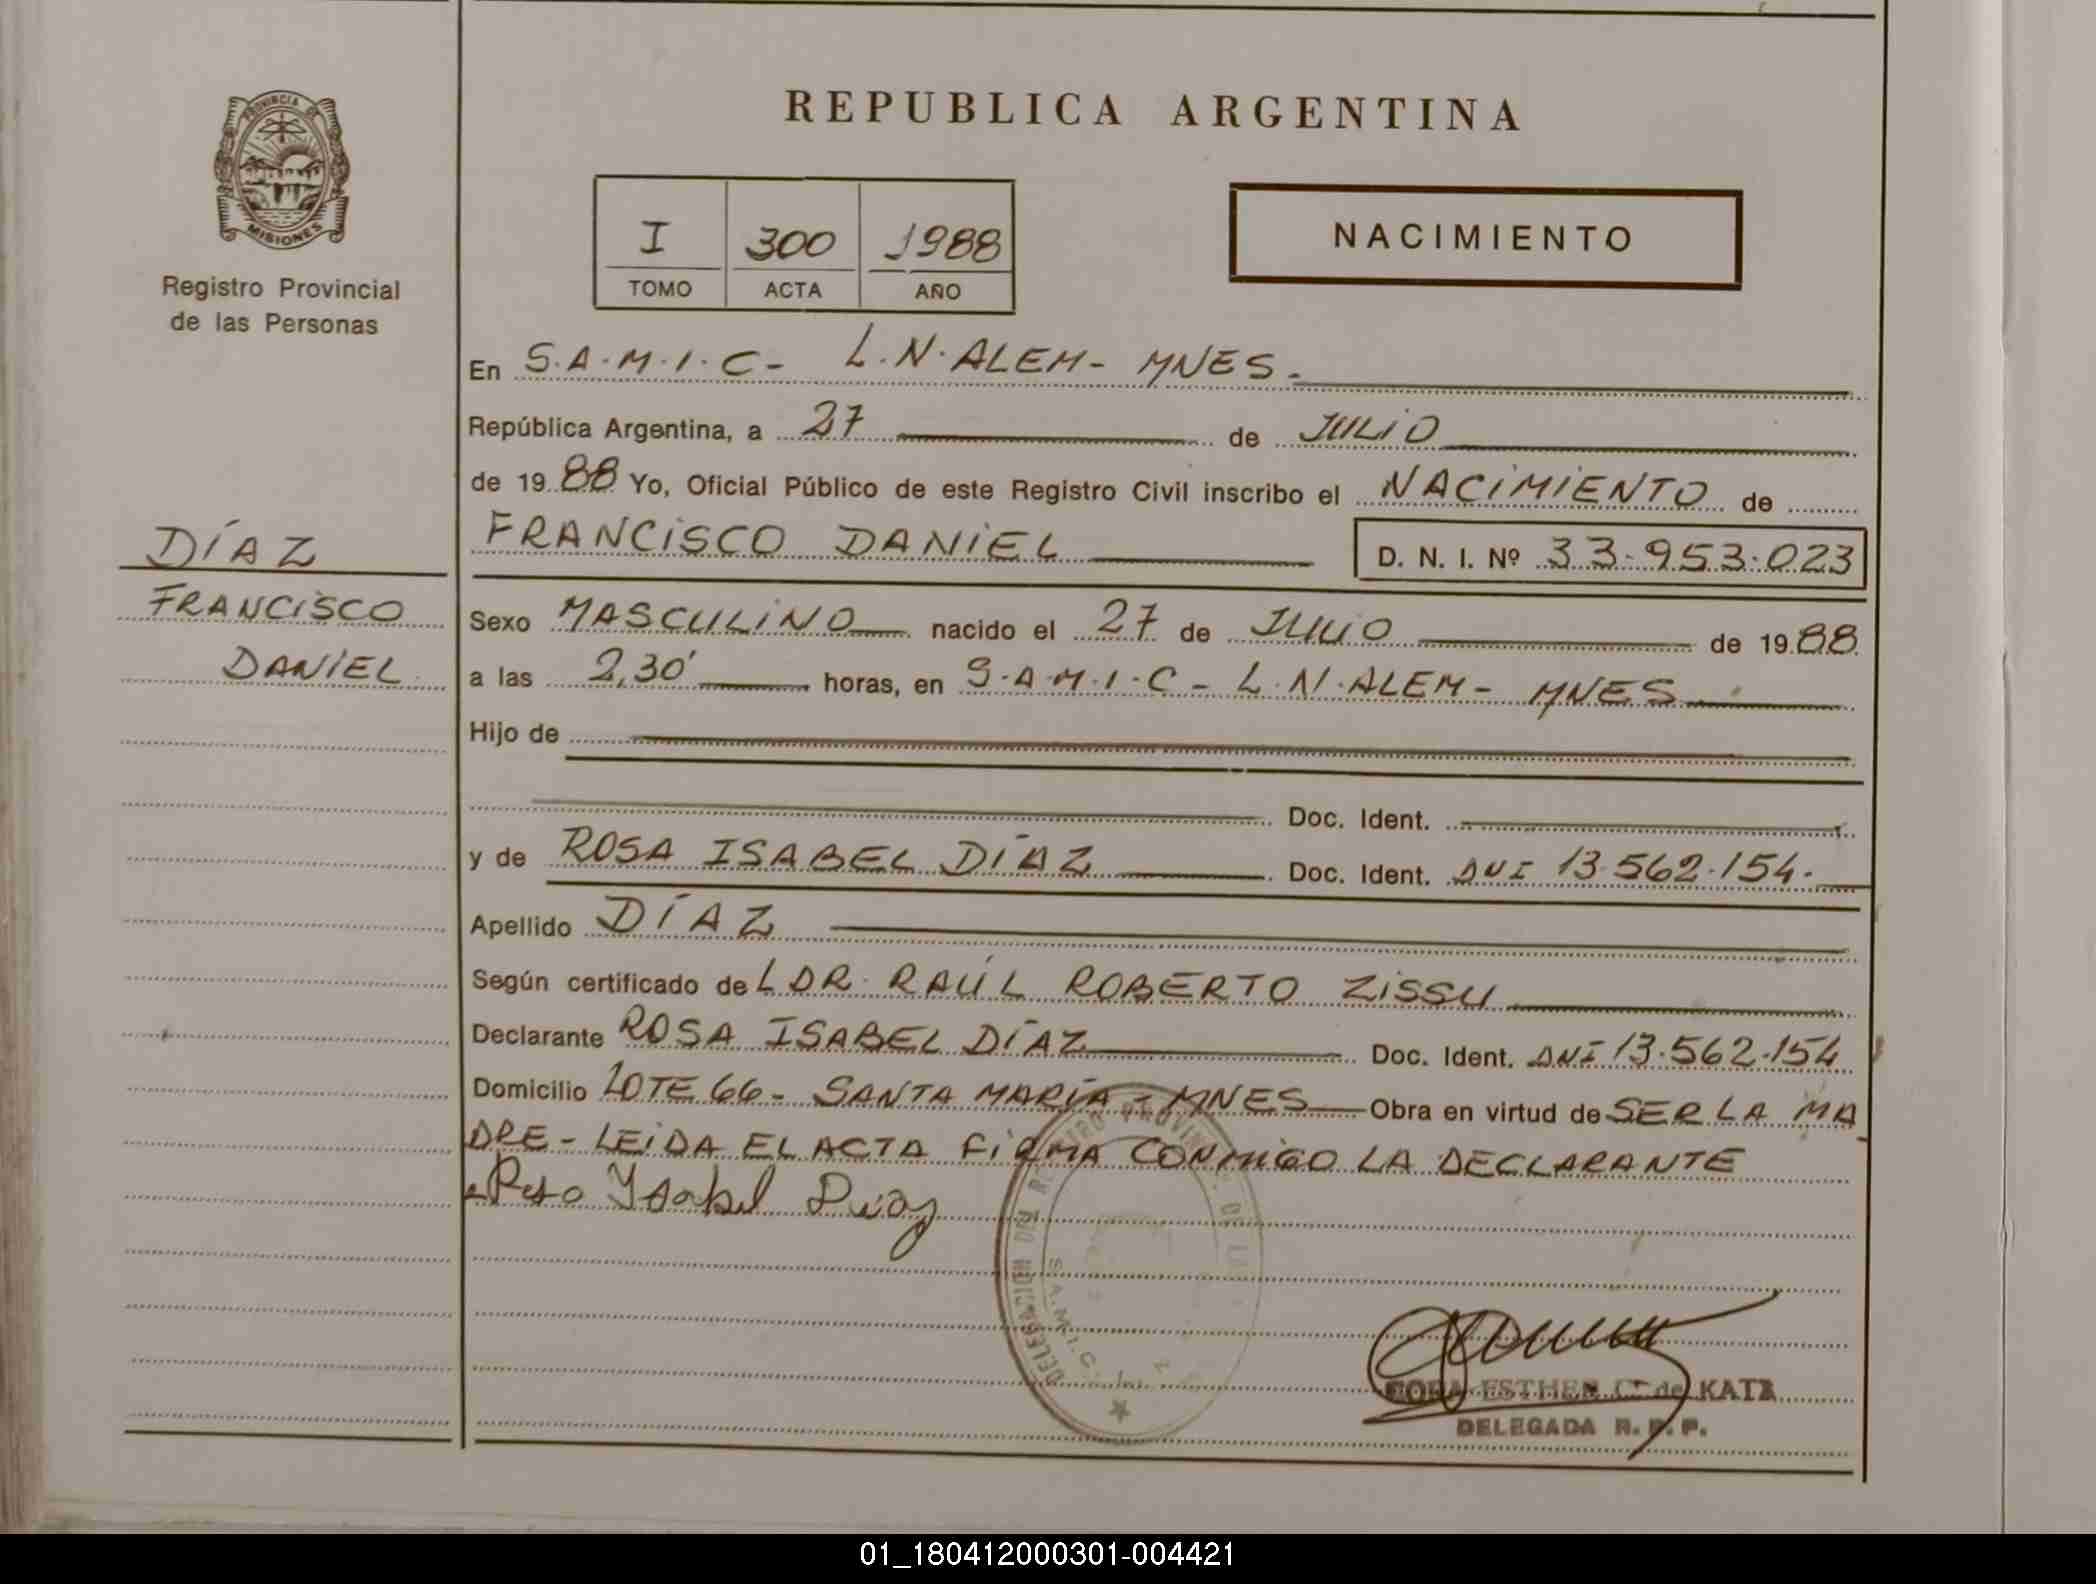 PROVINCIA DE
MISIONES
Registro Provincial
de las Personas
DÍAZ
FRANCISCO
DANIEL
REPUBLICA ARGENTINA
I 300 1988
TOMO ACTA AÑO
NACIMIENTO
En S.A.M.I.C- L.N.ALEM- MNES.
República Argentina, a 27 de JULIO
de 1988 Yo, Oficial Público de este Registro Civil inscribo el NACIMIENTO de
FRANCISCO DANIEL D. N. I. Nº 33.953.023
Sexo MASCULINO nacido el 27 de JULIO de 1988
a las 2,30' horas, en S.A.M.I.C- L.N.ALEM- MNES
Hijo de
Doc. Ident.
y de ROSA ISABEL DÍAZ Doc. Ident. DNI 13.562.154.
Apellido DÍAZ
Según certificado de L DR. RAÚL ROBERTO ZISSU
Declarante ROSA ISABEL DÍAZ Doc. Ident. DNI 13.562.154
Domicilio LOTE 66- SANTA MARÍA - MNES Obra en virtud de SER LA MA
DRE - LEIDA EL ACTA FIRMA CONMIGO LA DECLARANTE
Rosa Ysabel Diaz
DELEGACION DEL REGISTRO PROVINC. DE LA
S.A.M.I.C.
ESTHER C. de KATZ
DELEGADA R. P. P.
01_180412000301-004421